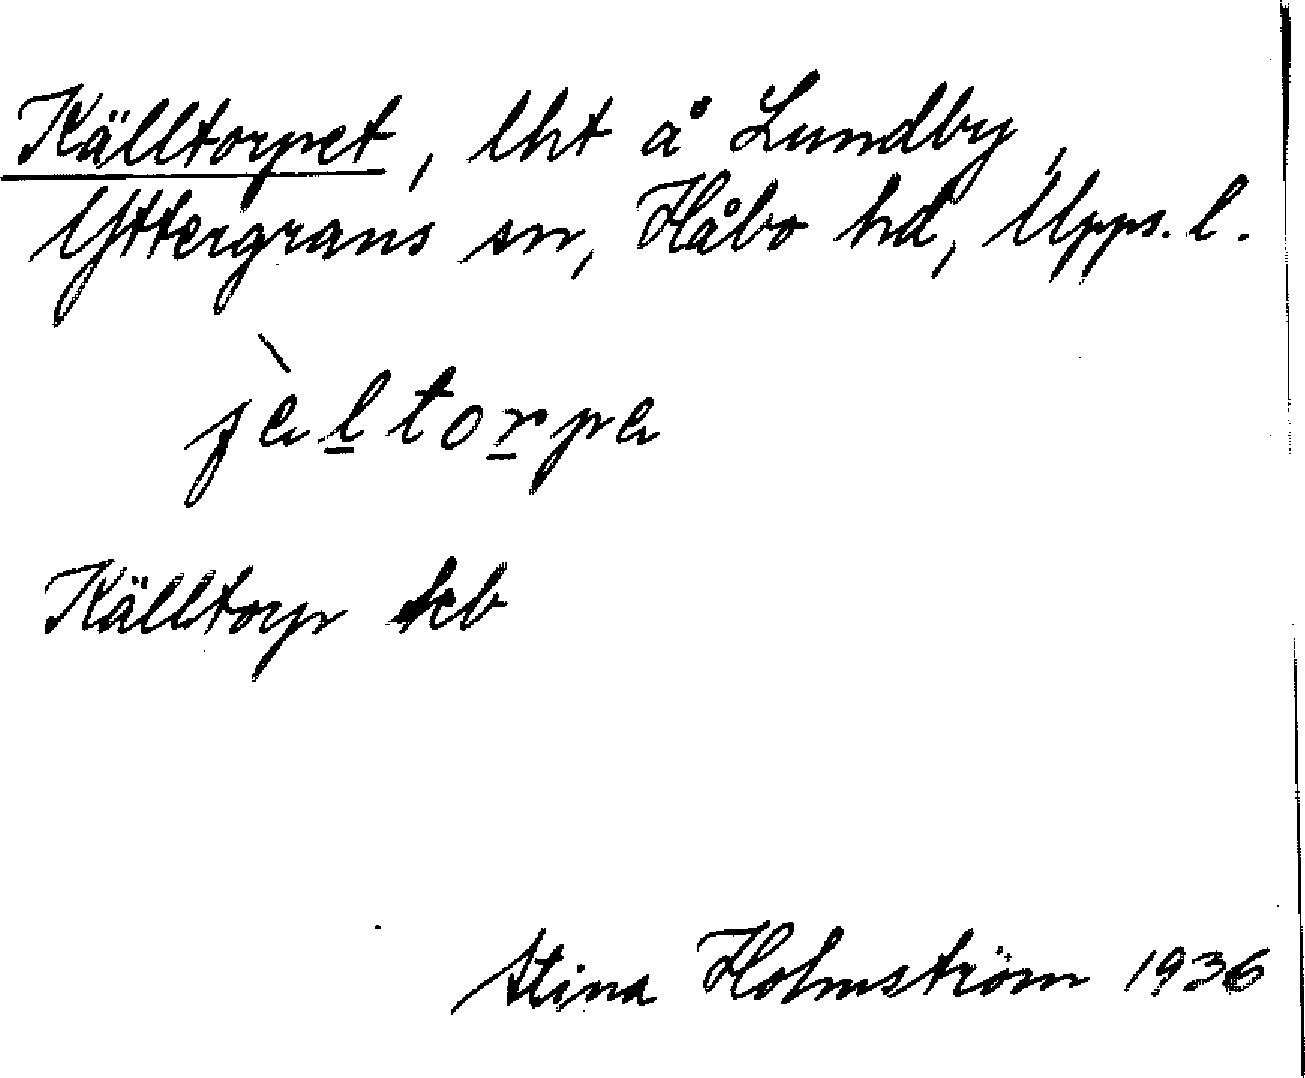 Källtorpet, lht å Lundby,
Yttergrans sn, Håbo hd, Upps. l.
jèltorpe
Källtorp
Stina Holmström 1936